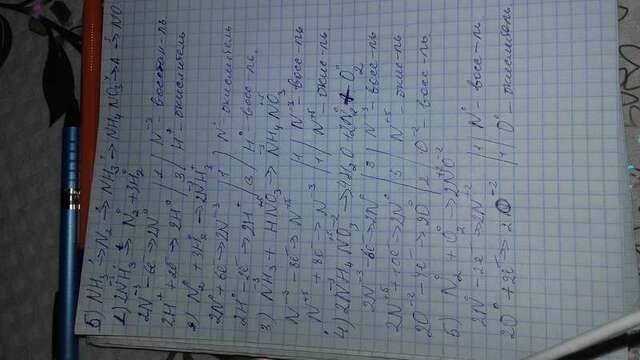 5) NH₃ →¹ N₂ →² NH₃ →³ NH₄NO₃ →⁴ A →⁵ NO
1) 2N⁻³H₃⁺ →ᵗ N₂⁰ + 3H₂⁰
2N⁻³ - 6e → 2N⁰ | 1 | N⁻³ - восстан-ль
2H⁺ + 2e → 2H⁰ | 3 | H⁺ - окислитель
2) N₂⁰ + 3H₂⁰ → 2N⁻³H₃
2N⁰ + 6e → 2N⁻³ | 1 | N⁰ - окислитель
2H⁰ - 2e → 2H⁺ | 3 | H⁰ - восс-ль
3) N⁻³H₃ + HN⁺⁵O₃ → N⁻³H₄N⁺⁵O₃
N⁻³ - 8e → N⁺⁵ | 1 | N⁻³ - восс-ль
N⁺⁵ + 8e → N⁻³ | 1 | N⁺⁵ - окис-ль
4) 2N⁻³H₄N⁺⁵O₃⁻² → 4H₂O + 2N₂⁰ + O₂⁰
2N⁻³ - 6e → 2N⁰ | | N⁻³ - восс-ль
2N⁺⁵ + 10e → 2N⁰ | 5 | N⁺⁵ - окис-ль
2O⁻² - 4e → 2O⁰ | 2 | O⁻² - восс-ль
5) N₂⁰ + O₂⁰ → 2N⁺²O⁻²
2N⁰ - 2e → 2N⁺² | 1 | N⁰ - восс-ль
2O⁰ + 2e → 2O⁻² | 1 | O⁰ - окислитель